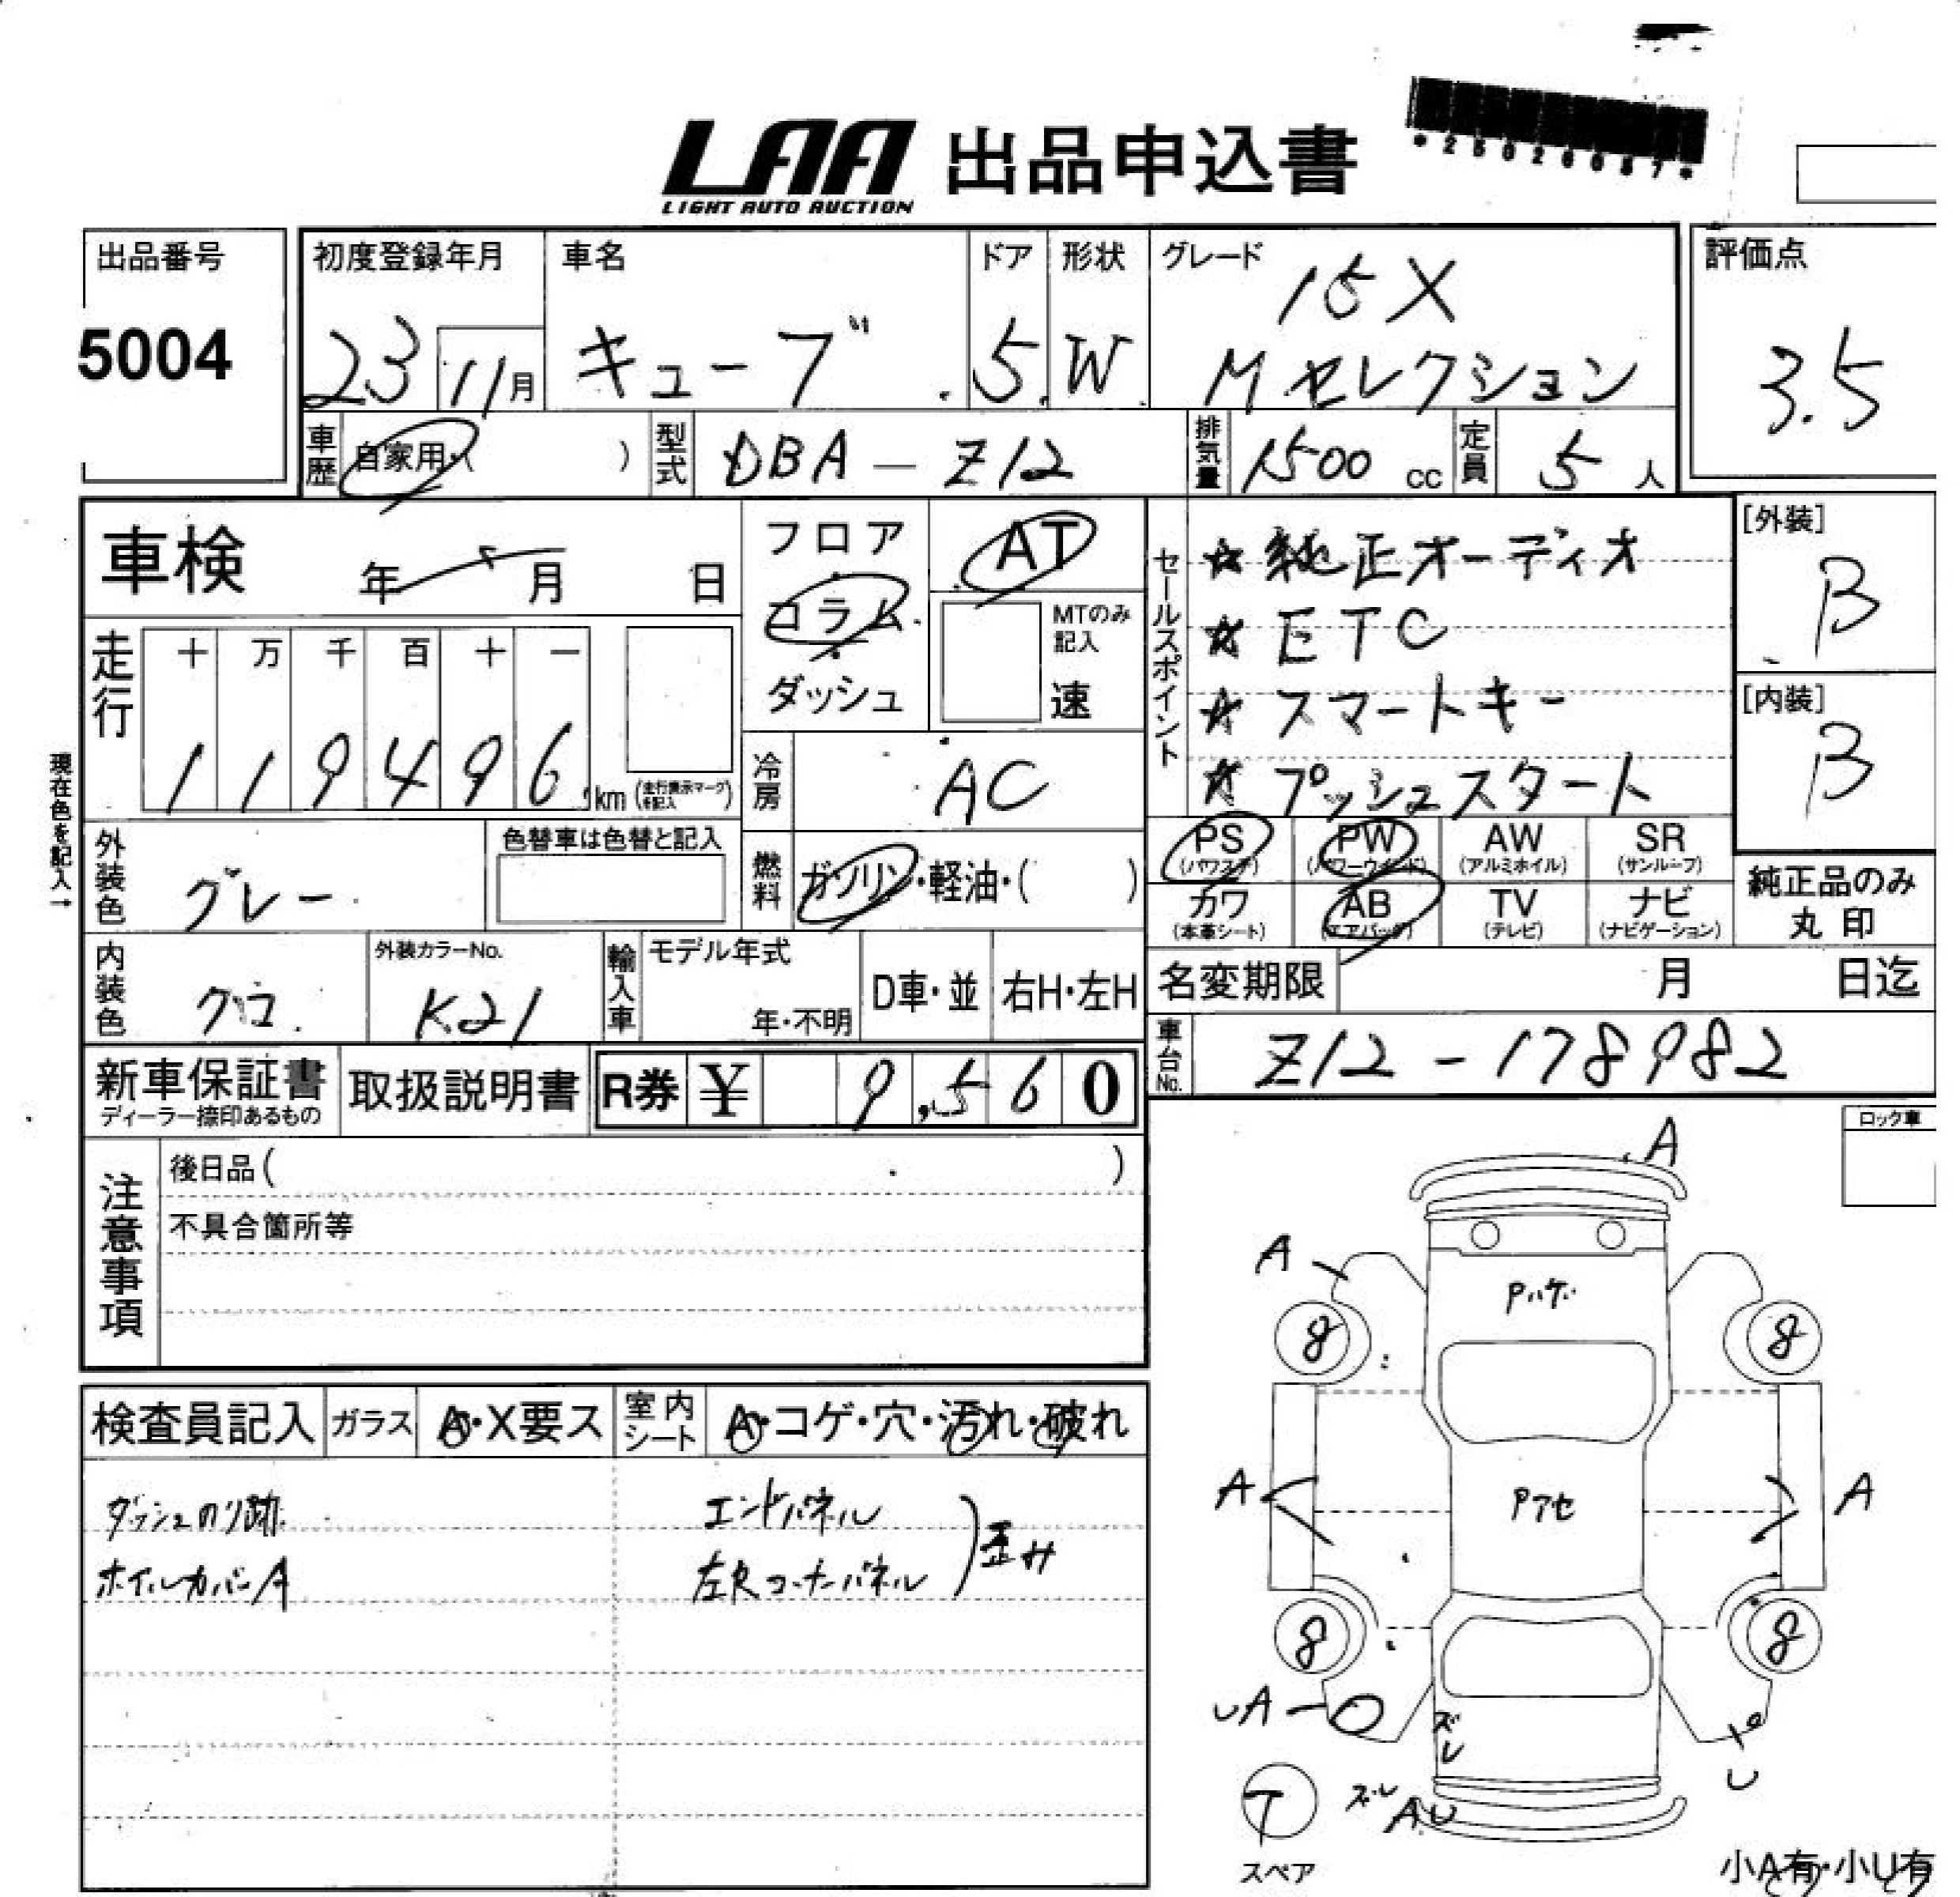 LAA 出品申込書
LIGHT AUTO AUCTION
出品番号
5004
初度登録年月
23 11月
車名
キューブ
ドア
5
形状
W
グレード
15X
Mセレクション
評価点
3.5
車歴
自家用・( )
型式
DBA-Z12
排気量
1500 cc
定員
5人
車検 年 月 日
フロア・コラム・ダッシュ
AT
MTのみ記入
速
セールスポイント
☆純正オーディオ
☆ETC
☆スマートキー
☆プッシュスタート
[外装]
B
[内装]
B
走行
十 万 千 百 十 一
1 1 9 4 9 6 km
(走行表示マークを記入)
冷房
AC
現在色を記入→
外装色
グレー
色替車は色替と記入
燃料
ガソリン・軽油・( )
PS (パワステ)
PW (パワーウィンド)
AW (アルミホイル)
SR (サンルーフ)
カワ (本革シート)
AB (エアバッグ)
TV (テレビ)
ナビ (ナビゲーション)
純正品のみ
丸印
内装色
クロ
外装カラーNo.
K21
輸入車
モデル年式
年・不明
D車・並
右H・左H
名変期限 月 日迄
車台No.
Z12-178982
新車保証書
ディーラー捺印あるもの
取扱説明書
R券 ¥ 9,560
注意事項
後日品( )
不具合箇所等
ロック車
検査員記入
ガラス A・X要ス
室内シート A・コゲ・穴・汚れ・破れ
ダッシュのり跡
ホイルカバーA
エンドパネル
左Rコーナーパネル
歪み
A
A
Pハゲ
8
8
A
Pアセ
A
8
8
UA
ズレ
U
T
スペア
ズレ
AU
小A有・小U有